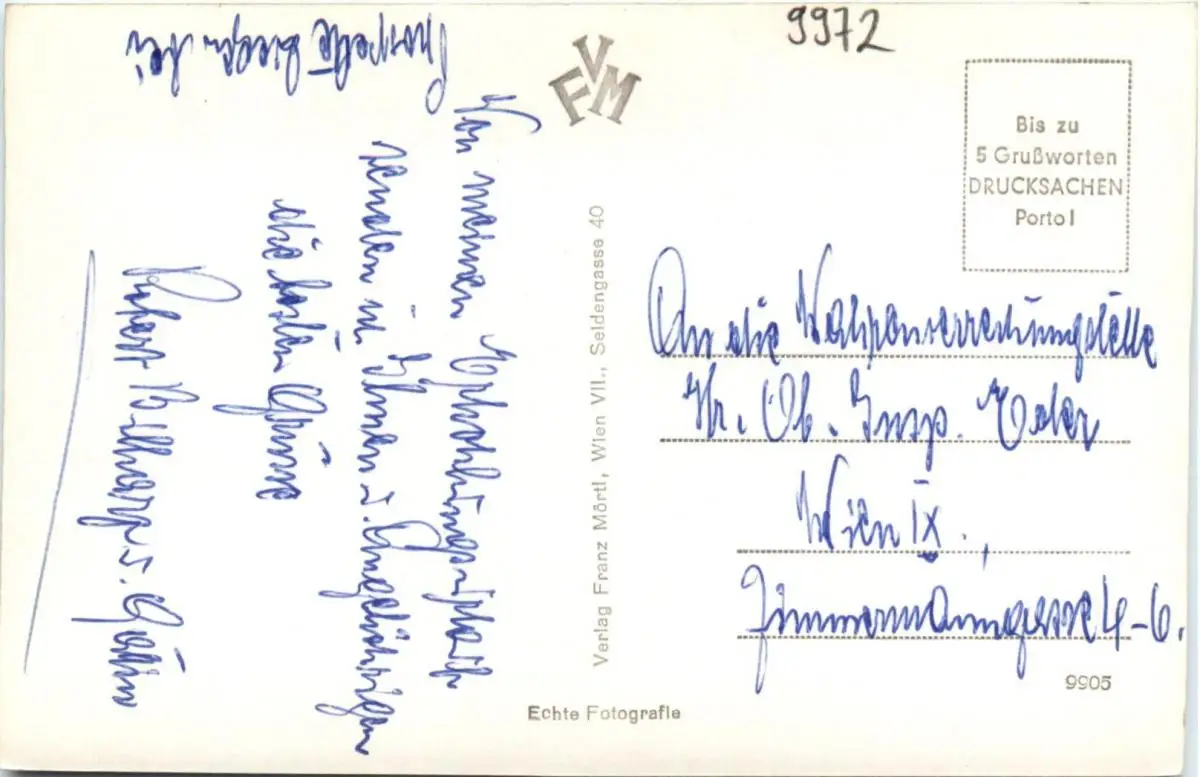 9972
FVM
Bis zu
5 Grußworten
DRUCKSACHEN
Porto!
Prospekte liegen bei
Von meinem Erholungsurlaub
senden die besten Grüsse
Robert u. Gattin
Verlag Franz Mörtl, Wien VII., Seidengasse 40
An die
Hr. Ob. Insp. Eder
Wien IX.,
Zimmermanngasse 4-6.
9905
Echte Fotografie